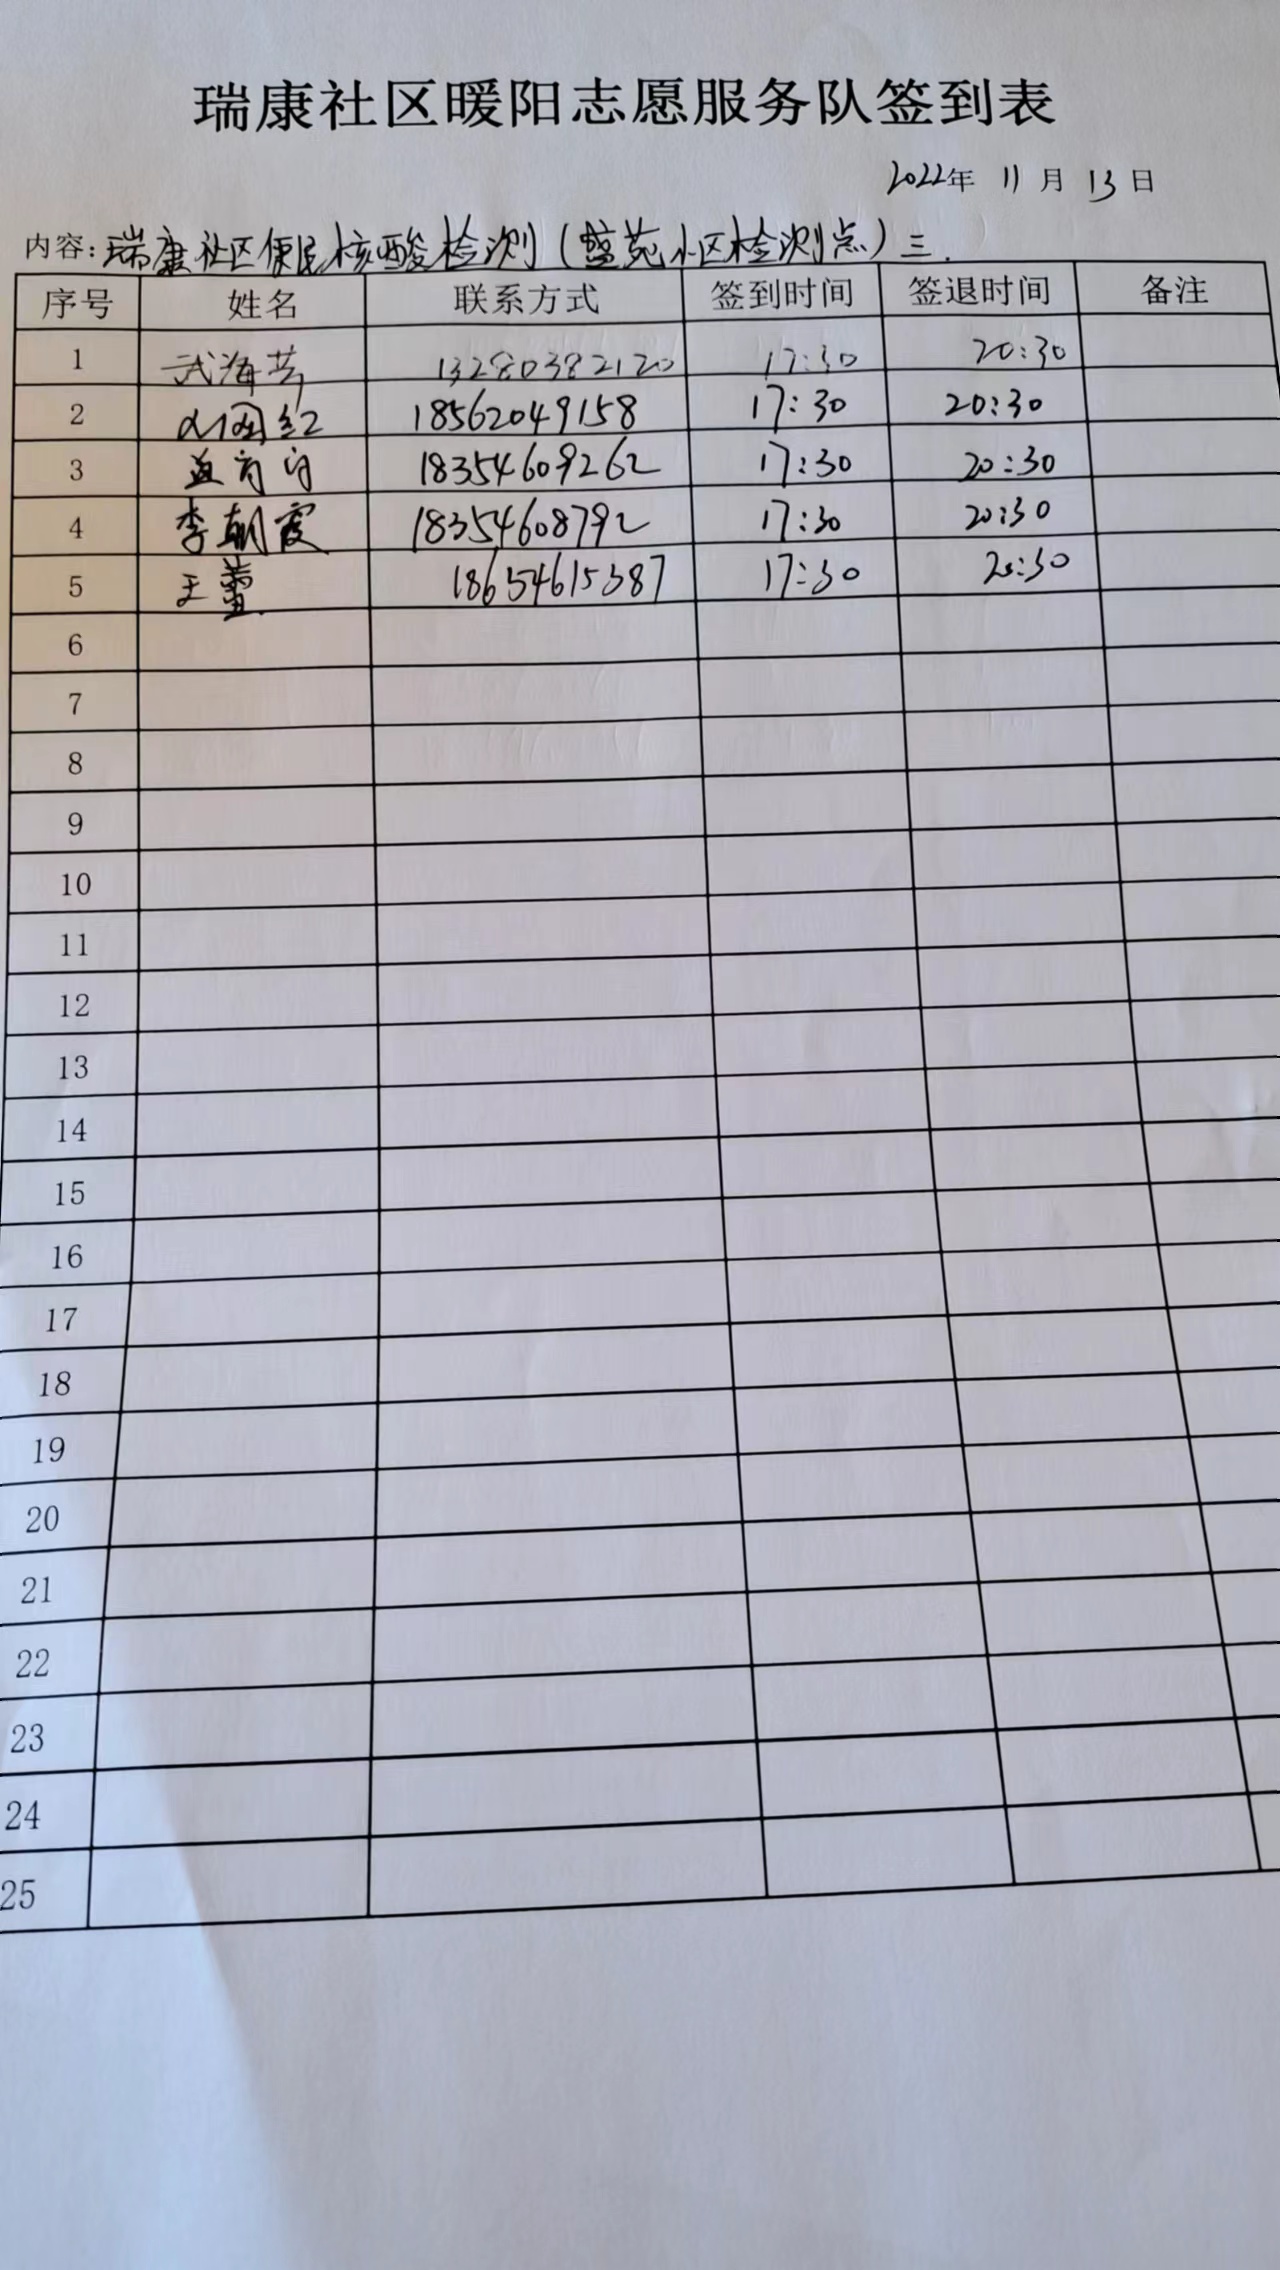 瑞康社区暖阳志愿服务队签到表
2022年 11 月 13 日
内容:瑞康社区便民核酸检测(盛苑小区检测点)三.
序号 姓名 联系方式 签到时间 签退时间 备注
1 武海芳 13280382120 17:30 20:30
2 红 18562049158 17:30 20:30
3 18354609262 17:30 20:30
4 李朝霞 18354608792 17:30 20:30
5 王蕾 18654615387 17:30 20:30
6
7
8
9
10
11
12
13
14
15
16
17
18
19
20
21
22
23
24
25